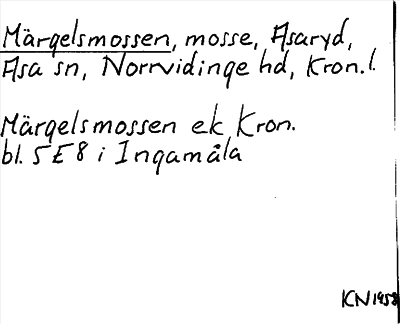 Märgelsmossen, mosse, Asaryd,
Asa sn, Norrvidinge hd, Kron.l.
Märgelsmossen ek Kron.
bl. 5E8 i Ingamåla
KN 1958